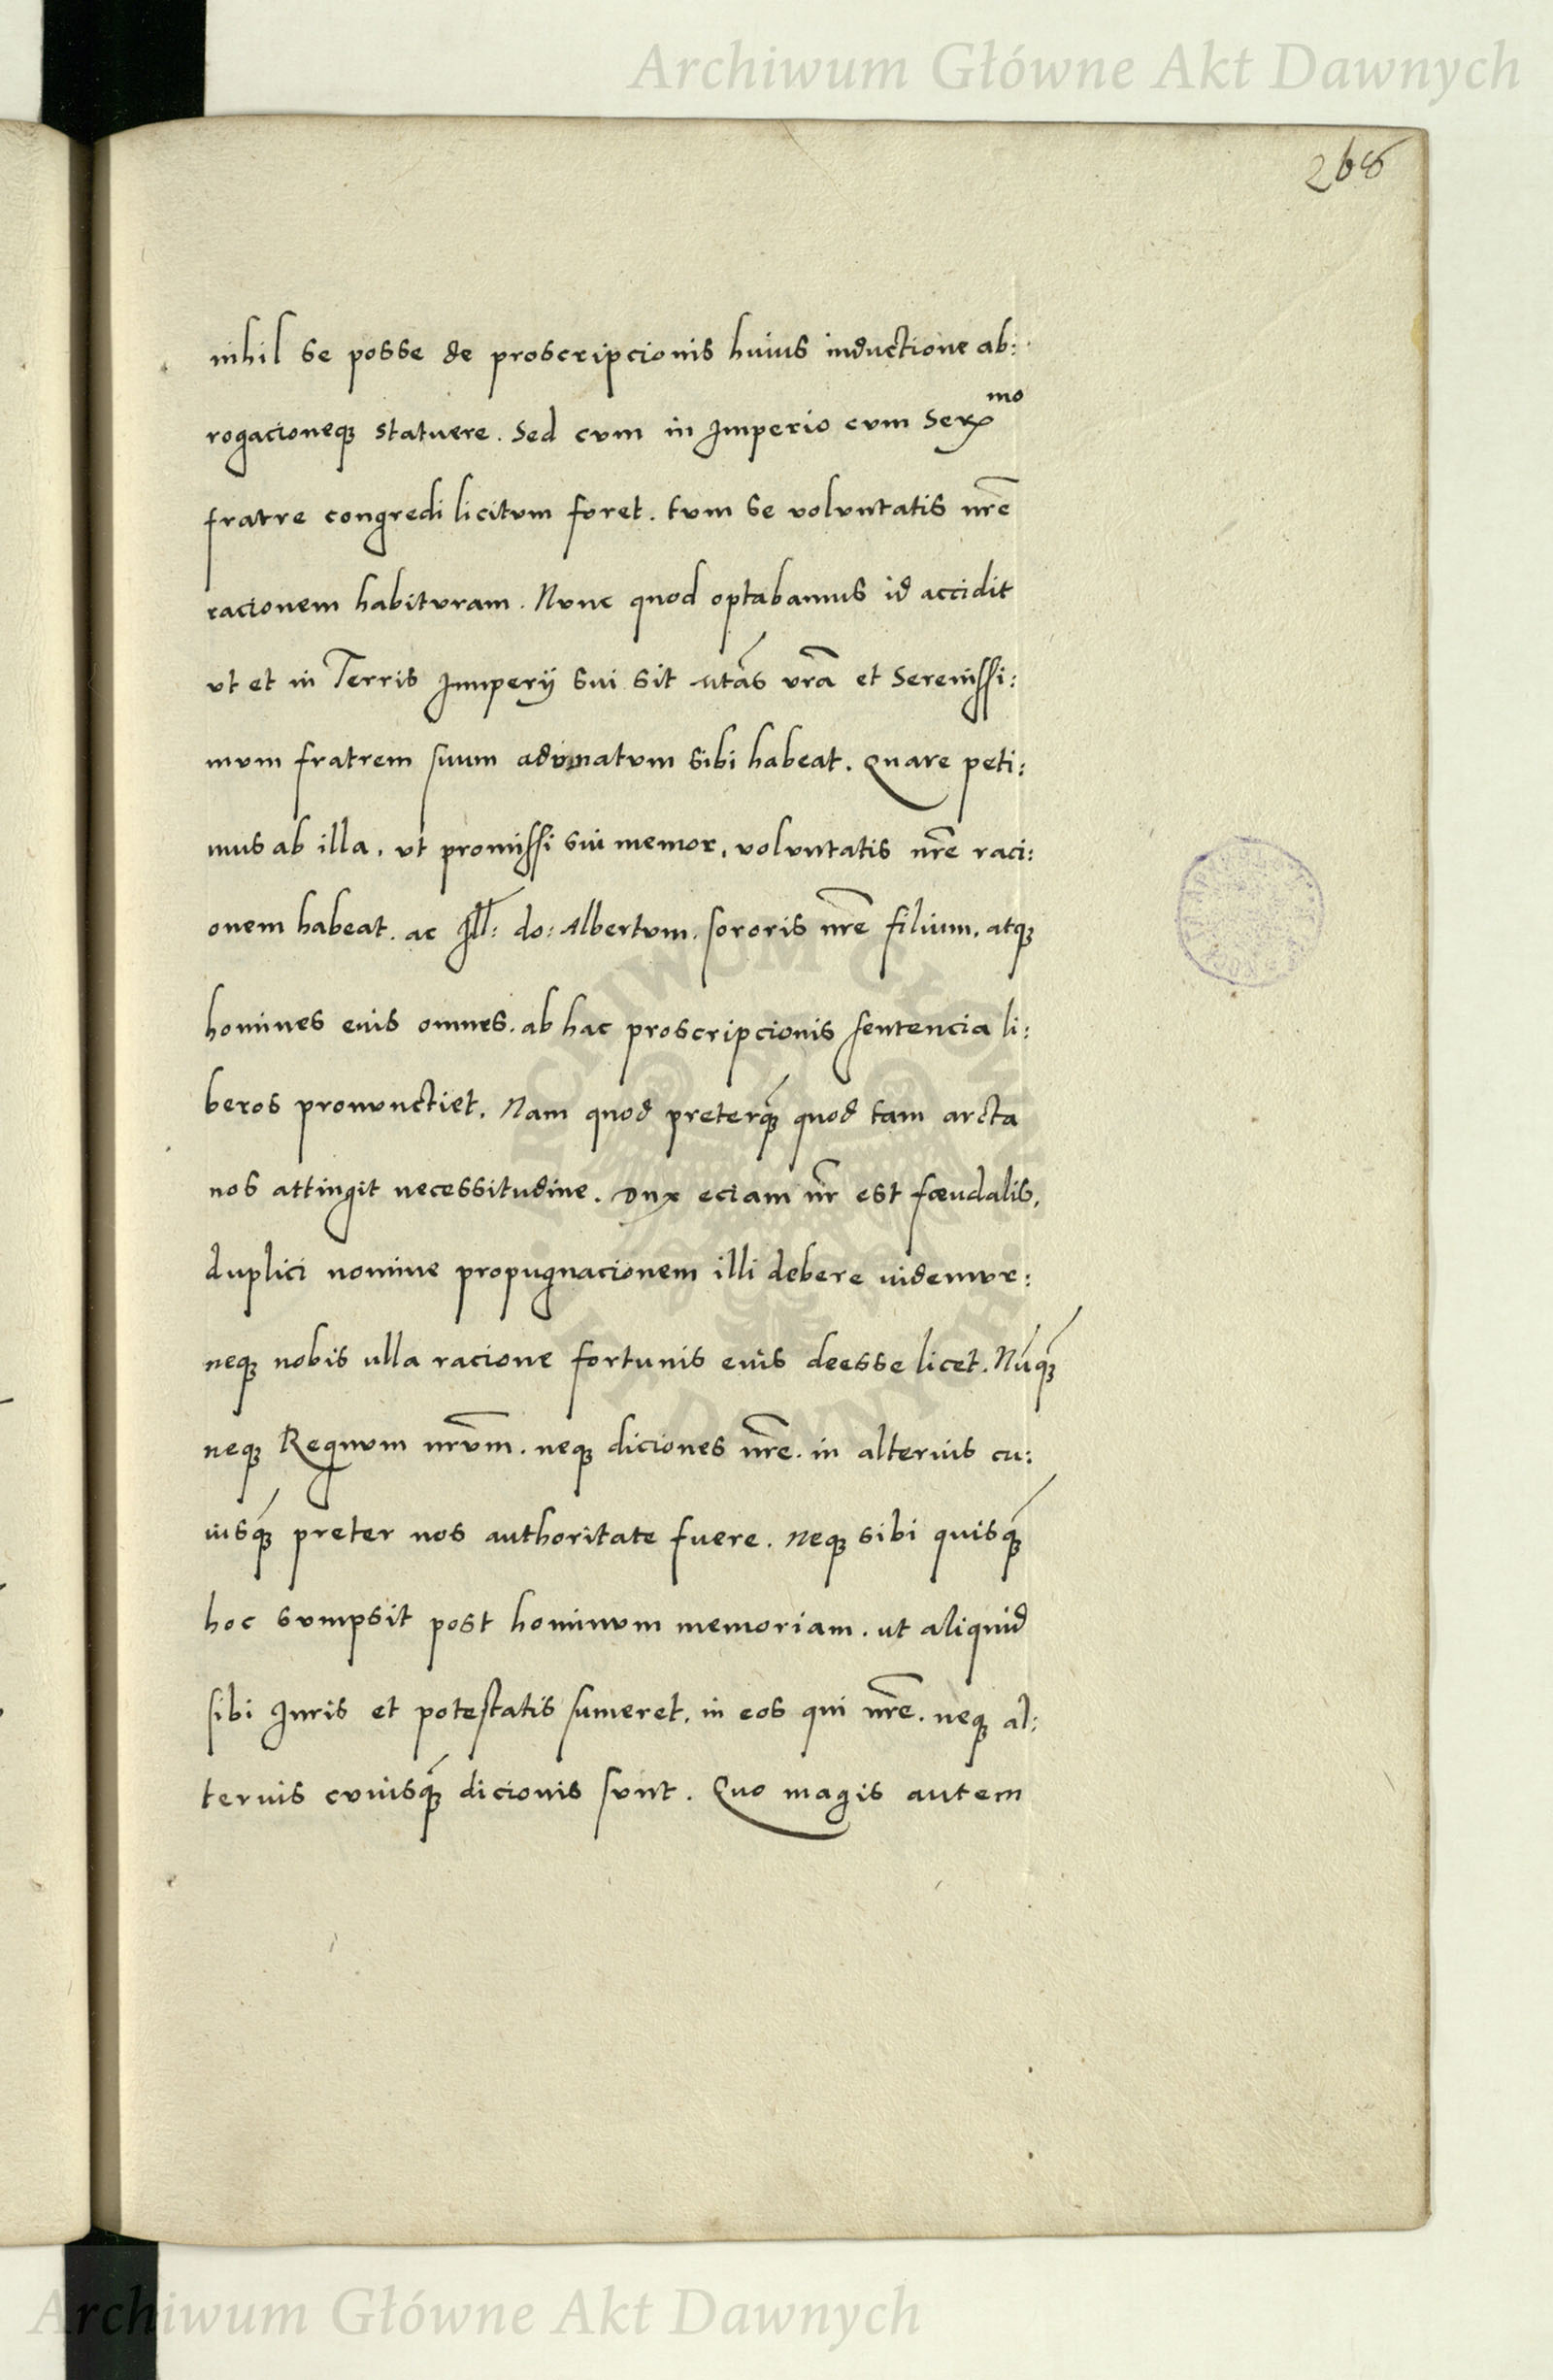 Archiwum Główne Akt Dawnych
268
nihil se posse de proscripcionis huius inductione ab:
rogacioneq; statuere. Sed cum in Imperio cum Ser^mo
fratre congredi licitum foret. tum se voluntatis nrẽ
racionem habituram. Nunc quod optabamus id accidit
ut et in Terris Imperij sui sit Mtãs vrã et Serenissi:
mum fratrem suum adunatum sibi habeat. Quare peti:
mus ab illa, ut promissi sui memor, voluntatis nrẽ raci:
onem habeat. ac Ill: do: Albertum. sororis nrẽ filium, atq;
homines euis omnes. ab hac proscripcionis sentencia li:
beros pronunctiet. Nam quod preterq̃; quod tam arcta
nos attingit necessitudine. Dux eciam nr̃ est fœudalis,
duplici nomine propugnacionem illi debere uidemur:
neq; nobis ulla racione fortunis euis deesse licet. Nũq;
neq; Regnum nrũm. neq; diciones nrẽ. in alterius cu:
iusq̃; preter nos authoritate fuere. Neq; sibi quisq̃;
hoc sumpsit post hominum memoriam. ut aliquid
sibi Iuris et potestatis sumeret. in eos qui nrẽ. neq; al:
terius cuiusq̃; dicionis sunt. Quo magis autem
Archiwum Główne Akt Dawnych